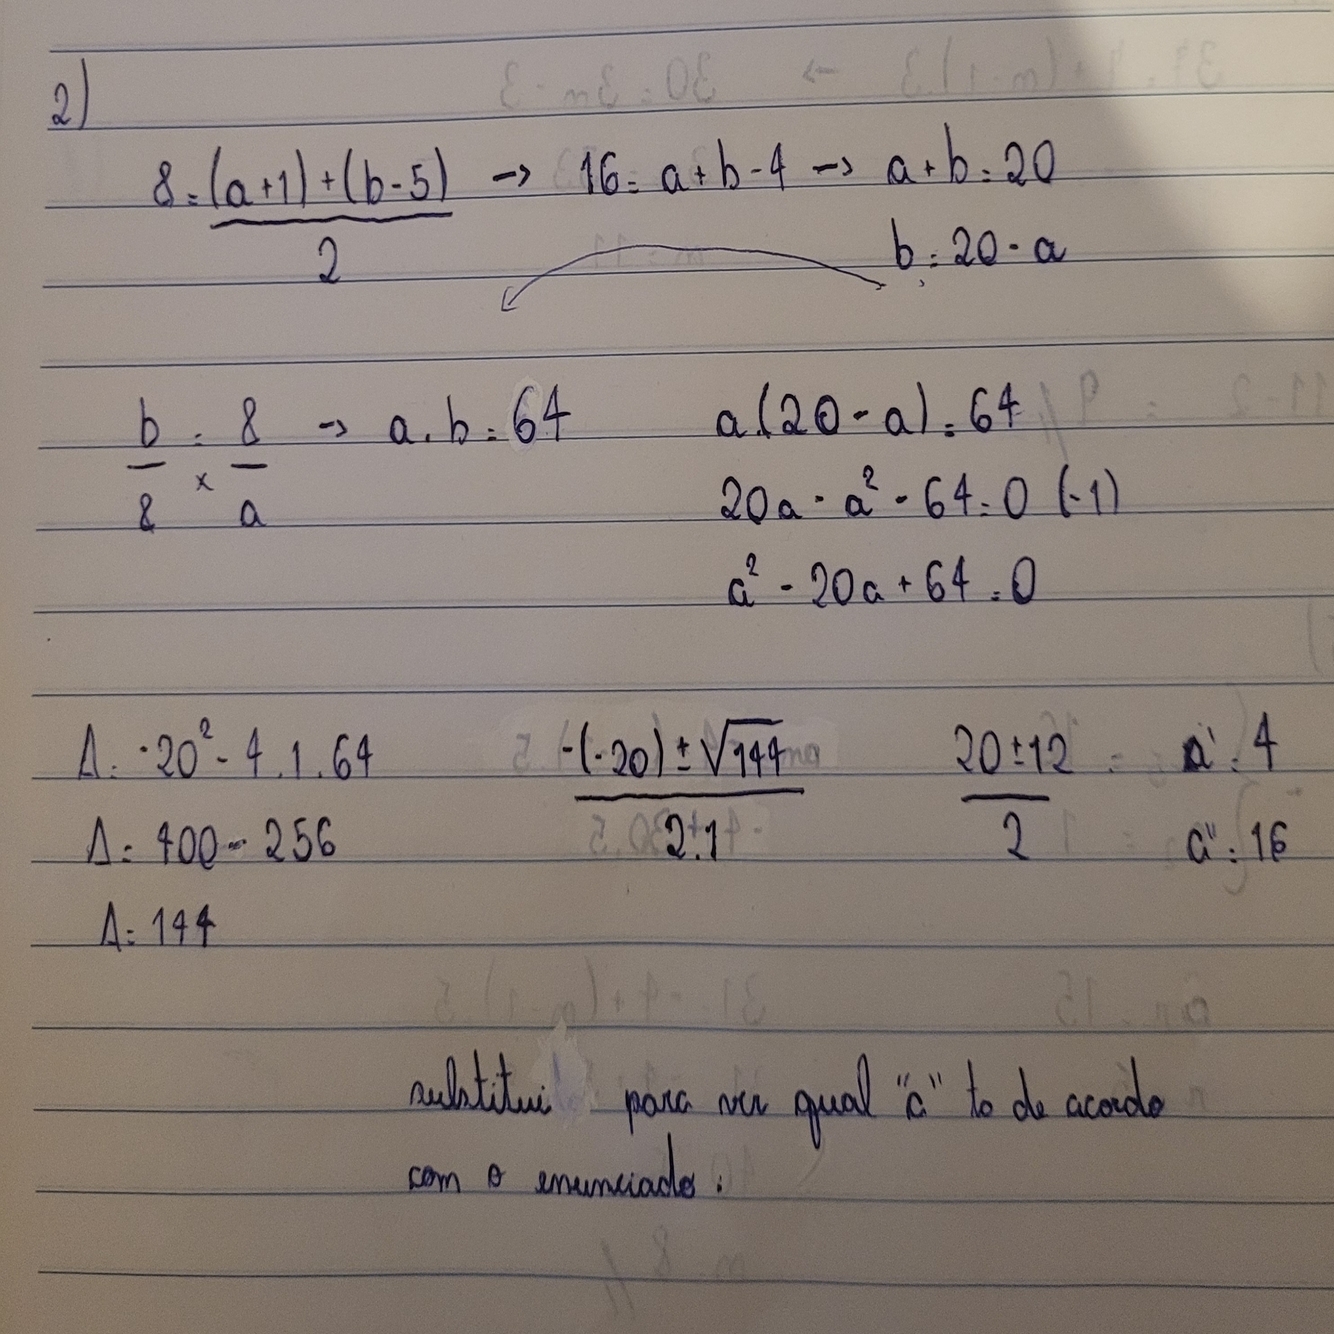 2)
8 = (a+1)+(b-5) / 2 → 16 = a+b-4 → a+b = 20
b = 20 - a
b/8 × = 8/a → a.b = 64
a.(20-a) = 64
20a - a² - 64 = 0 (-1)
a² - 20a + 64 = 0
Δ = -20² - 4.1.64
Δ = 400 - 256
Δ = 144
-(-20) ± √144 / 2.1
20 ± 12 / 2 = a' = 4
a" = 16
substitui para ver qual "a" to de acordo
com o enunciado.